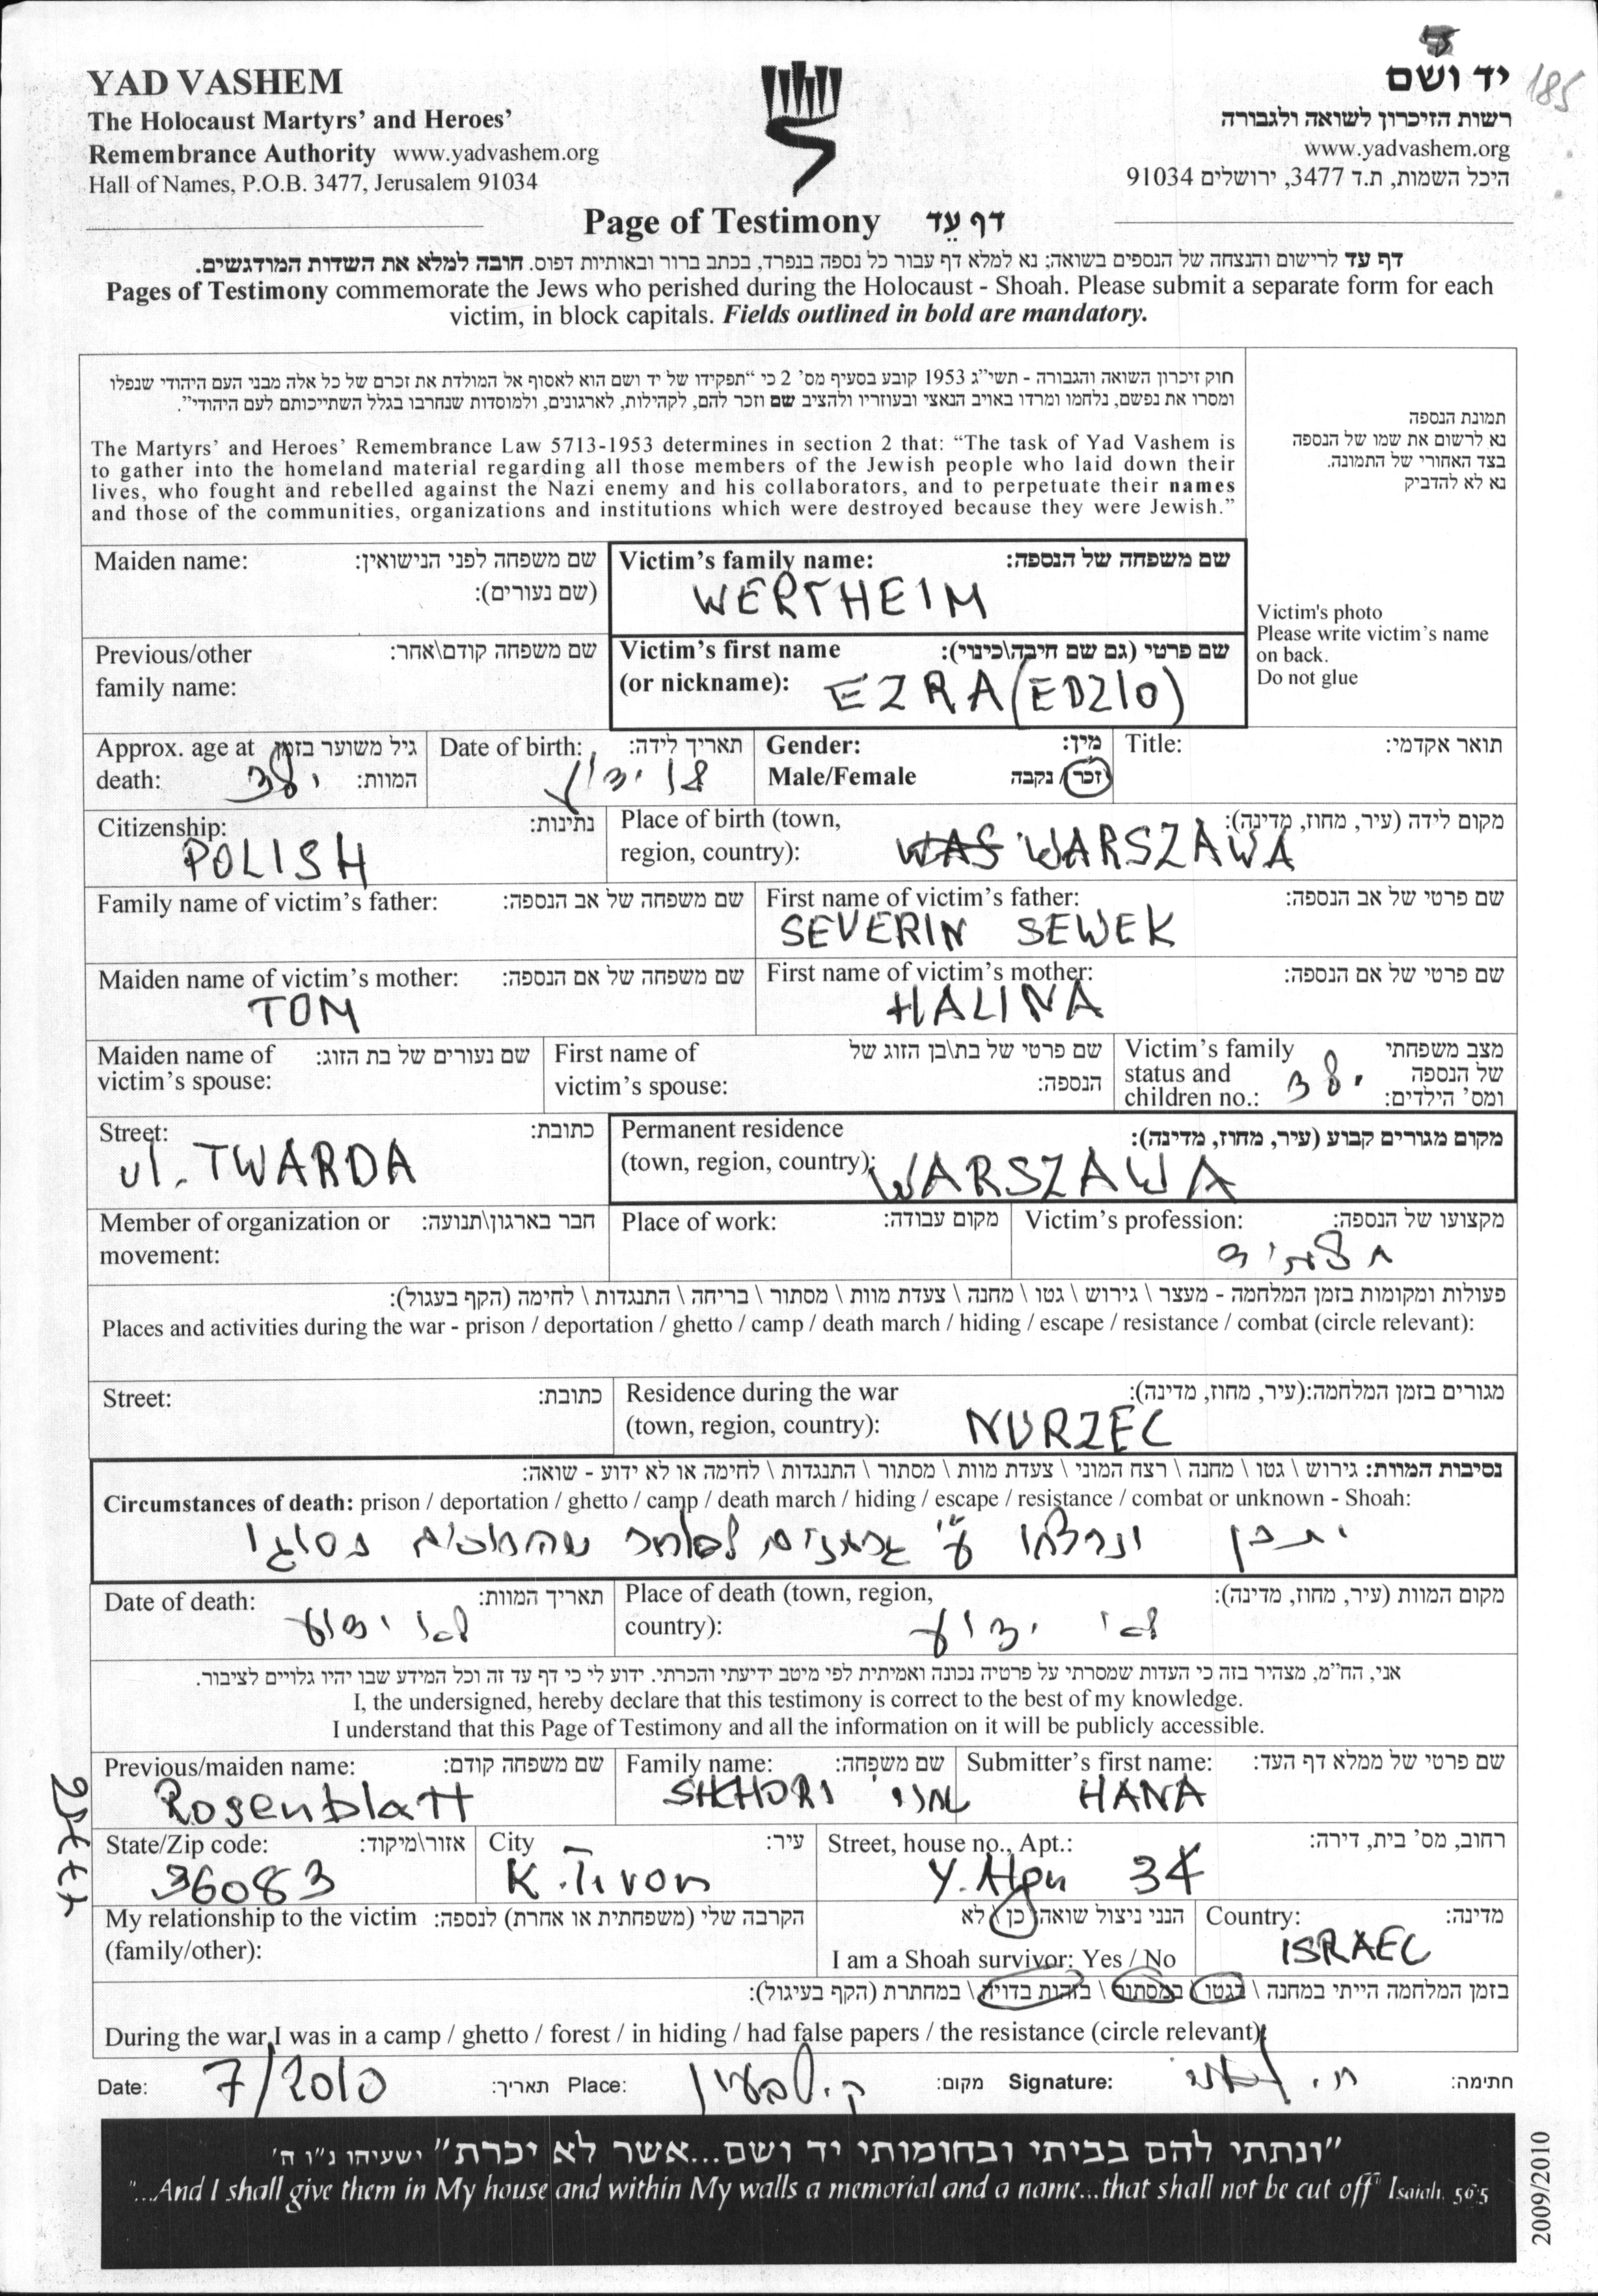 YAD VASHEM
The Holocaust Martyrs' and Heroes'
Remembrance Authority www.yadvashem.org
Hall of Names, P.O.B. 3477, Jerusalem 91034
יד ושם
185
רשות הזיכרון לשואה ולגבורה
www.yadvashem.org
היכל השמות, ת.ד 3477, ירושלים 91034
Page of Testimony דף עֵד
דף עד לרישום והנצחה של הנספים בשואה; נא למלא דף עבור כל נספה בנפרד, בכתב ברור ובאותיות דפוס. חובה למלא את השדות המודגשים.
Pages of Testimony commemorate the Jews who perished during the Holocaust - Shoah. Please submit a separate form for each
victim, in block capitals. Fields outlined in bold are mandatory.
חוק זיכרון השואה והגבורה - תשי"ג 1953 קובע בסעיף מס' 2 כי "תפקידו של יד ושם הוא לאסוף אל המולדת את זכרם של כל אלה מבני העם היהודי שנפלו
ומסרו את נפשם, נלחמו ומרדו באויב הנאצי ובעוזריו ולהציב שם וזכר להם, לקהילות, לארגונים, ולמוסדות שנחרבו בגלל השתייכותם לעם היהודי".
The Martyrs' and Heroes' Remembrance Law 5713-1953 determines in section 2 that: "The task of Yad Vashem is
to gather into the homeland material regarding all those members of the Jewish people who laid down their
lives, who fought and rebelled against the Nazi enemy and his collaborators, and to perpetuate their names
and those of the communities, organizations and institutions which were destroyed because they were Jewish."
תמונת הנספה
נא לרשום את שמו של הנספה
בצד האחורי של התמונה.
נא לא להדביק
Victim's photo
Please write victim's name
on back.
Do not glue
Maiden name: שם משפחה לפני הנישואין:
(שם נעורים):
Victim's family name: שם משפחה של הנספה:
WERTHEIM
Previous/other שם משפחה קודם\אחר:
family name:
Victim's first name שם פרטי (גם שם חיבה\כינוי):
(or nickname): EZRA (EDZIO)
Approx. age at גיל משוער בזמן
death: ילד המוות:
Date of birth: תאריך לידה:
לא ידוע
Gender: מין:
Male/Female זכר / נקבה
Title: תואר אקדמי:
Citizenship: נתינות:
POLISH
Place of birth (town, מקום לידה (עיר, מחוז, מדינה):
region, country): WAS WARSZAWA
Family name of victim's father: שם משפחה של אב הנספה:
First name of victim's father: שם פרטי של אב הנספה:
SEVERIN SEWEK
Maiden name of victim's mother: שם משפחה של אם הנספה:
TOM
First name of victim's mother: שם פרטי של אם הנספה:
HALINA
Maiden name of שם נעורים של בת הזוג:
victim's spouse:
First name of שם פרטי של בת\בן הזוג של
victim's spouse: הנספה:
Victim's family מצב משפחתי
status and של הנספה
children no.: ילד ומס' הילדים:
Street: כתובת:
ul. TWARDA
Permanent residence מקום מגורים קבוע (עיר, מחוז, מדינה):
(town, region, country): WARSZAWA
Member of organization or חבר בארגון\תנועה:
movement:
Place of work: מקום עבודה:
Victim's profession: מקצועו של הנספה:
תלמיד
פעולות ומקומות בזמן המלחמה - מעצר \ גירוש \ גטו \ מחנה \ צעדת מוות \ מסתור \ בריחה \ התנגדות \ לחימה (הקף בעגול):
Places and activities during the war - prison / deportation / ghetto / camp / death march / hiding / escape / resistance / combat (circle relevant):
Street: כתובת:
Residence during the war מגורים בזמן המלחמה:(עיר, מחוז, מדינה):
(town, region, country): NURZEC
נסיבות המוות: גירוש \ גטו \ מחנה \ רצח המוני \ צעדת מוות \ מסתור \ התנגדות \ לחימה או לא ידוע - שואה:
Circumstances of death: prison / deportation / ghetto / camp / death march / hiding / escape / resistance / combat or unknown - Shoah:
יתכן ונרצחו ע"י גרמנים לאחר נסוגו
Date of death: תאריך המוות:
לא ידוע
Place of death (town, region, מקום המוות (עיר, מחוז, מדינה):
country): לא ידוע
אני, הח"מ, מצהיר בזה כי העדות שמסרתי על פרטיה נכונה ואמיתית לפי מיטב ידיעתי והכרתי. ידוע לי כי דף עד זה וכל המידע שבו יהיו גלויים לציבור.
I, the undersigned, hereby declare that this testimony is correct to the best of my knowledge.
I understand that this Page of Testimony and all the information on it will be publicly accessible.
Previous/maiden name: שם משפחה קודם:
Rosenblatt
Family name: שם משפחה:
SHHORI שחורי
Submitter's first name: שם פרטי של ממלא דף העד:
HANA
State/Zip code: אזור\מיקוד:
36083
City עיר:
K. Tivon
Street, house no., Apt.: רחוב, מס' בית, דירה:
Y. Alon 34
My relationship to the victim הקרבה שלי (משפחתית או אחרת) לנספה:
(family/other):
הנני ניצול שואה כן \ לא
I am a Shoah survivor: Yes / No
Country: מדינה:
ISRAEL
בזמן המלחמה הייתי במחנה \ בגטו \ במסתור \ בזהות בדויה \ במחתרת (הקף בעיגול):
During the war I was in a camp / ghetto / forest / in hiding / had false papers / the resistance (circle relevant):
Date: 7/2010 תאריך: Place: ק. טבעון מקום: Signature: ח. שחורי חתימה:
"ונתתי להם בביתי ובחומותי יד ושם...אשר לא יכרת" ישעיהו נ"ו ה'
"...And I shall give them in My house and within My walls a memorial and a name...that shall not be cut off" Isaiah, 56:5
2009/2010